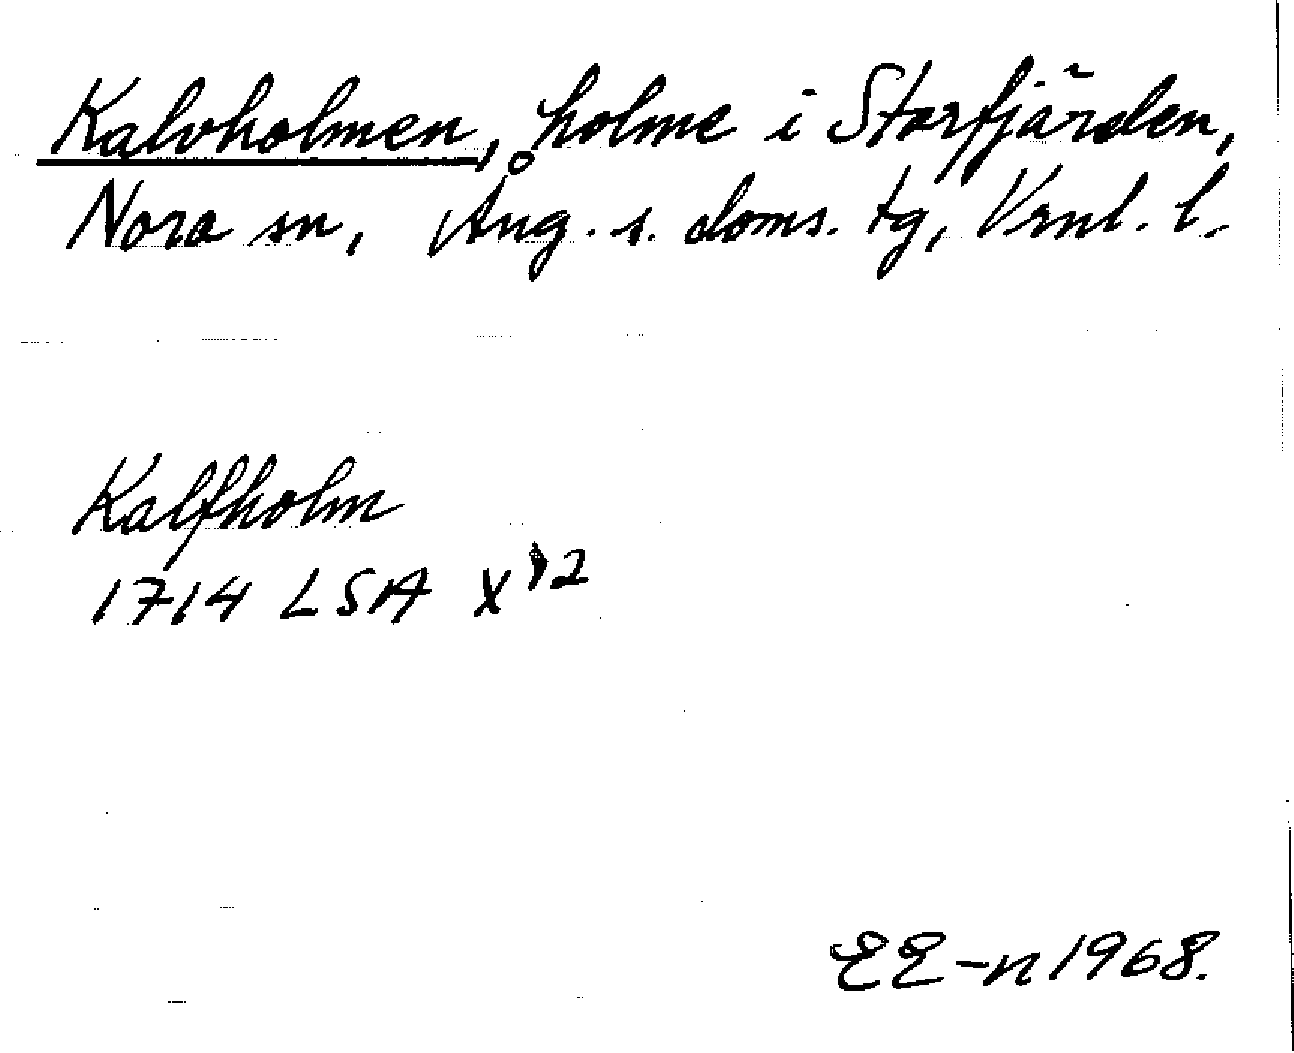 Kalvholmen, holme i Storfjärden,
Nora sn, Ång. s. doms. tg, Vrnl. l.
Kalfholm
1714 LSA X 12
EE-n 1968.